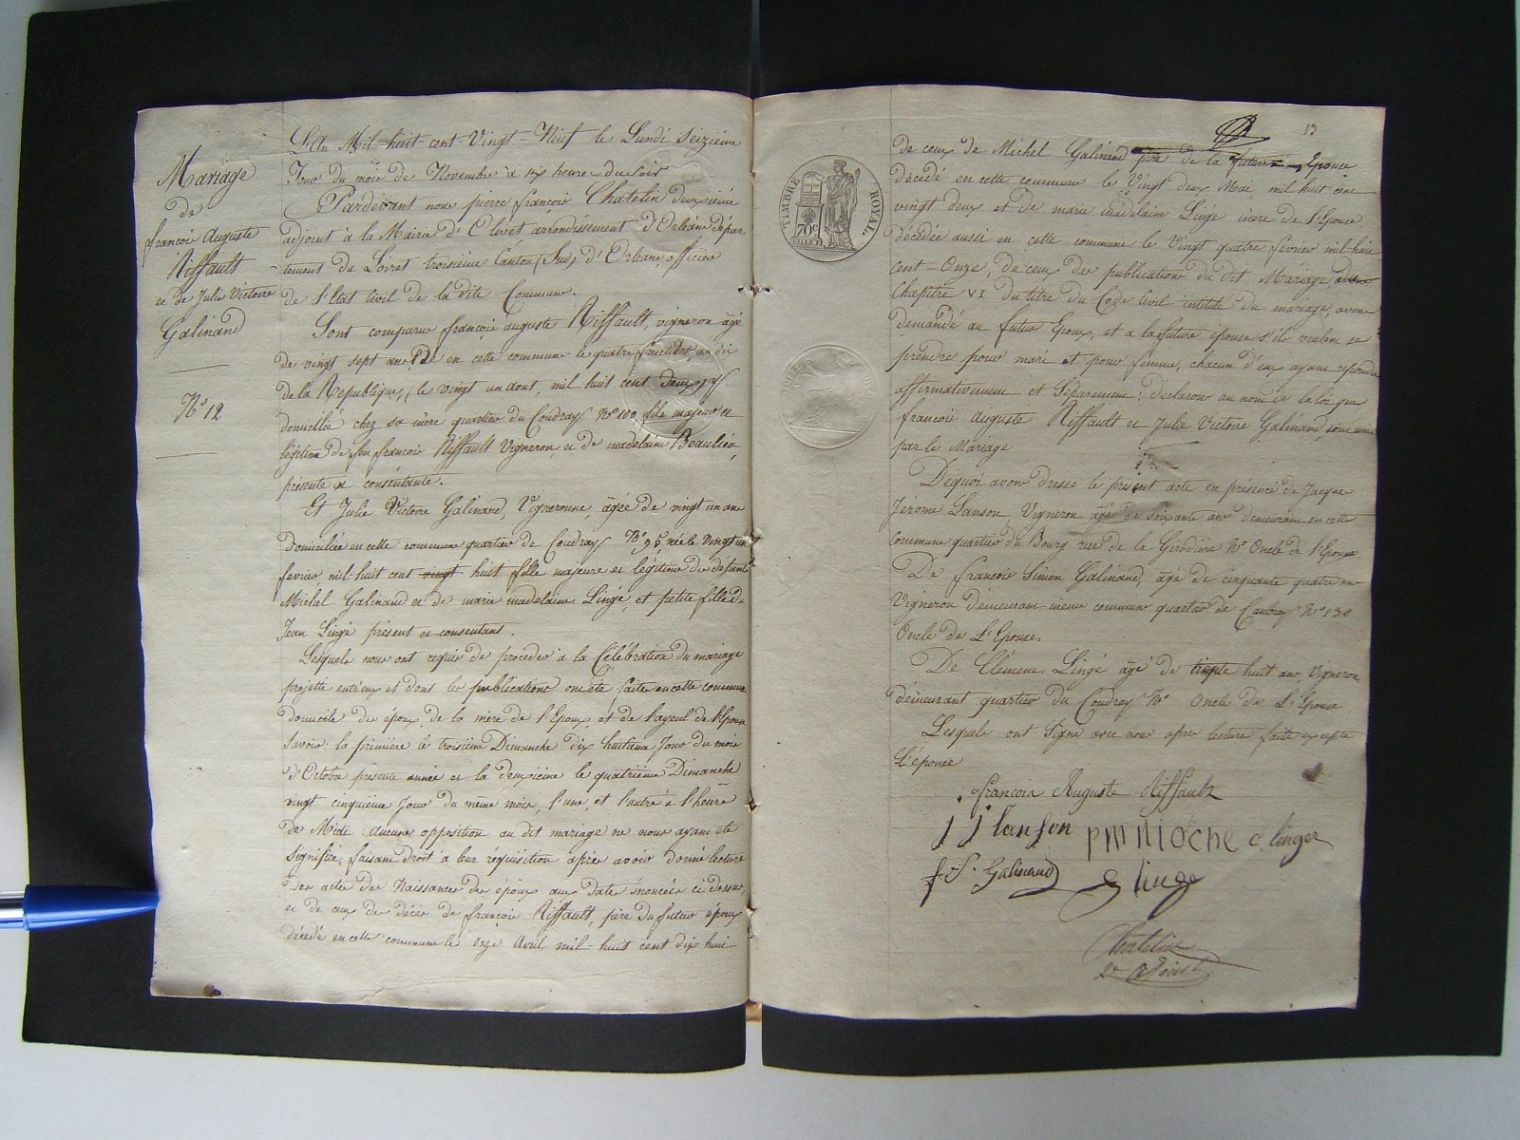 Mariage
de
françois Auguste
Riffault
et de Julie Victoire
Galinand
N° 12
L'An Mil-huit-cent-Vingt-Neuf le Lundi Seizième
Jour du mois de Novembre à six heure du soir
Pardevant nous pierre françois Chatelin Deuxième
adjoint à la Mairie d' arrondissement d'Orléans dépar-
tement du Loiret troisième Canton (Sud) d'Orléans, officier
de l'Etat Civil de la dite Commune.
Sont comparus françois auguste Riffault, vigneron âgé
de vingt sept ans, en cette commune le quatre fructidor, an dix
de la République, (le vingt un aout, mil huit cent deux)
domicilié chez sa mère quartier du Coudray N° 100, fils majeur et
légitime de feu françois Riffault Vigneron, et de madelaine Beaulieu,
présente et consentante.
Et Julie Victoire Galinand, Vigneronne âgée de vingt un ans
Domiciliée en cette commune quartier de Coudray N° 95, née le Vingt un
fevrier mil huit cent vingt huit fille majeure et légitime de défunt
Michel Galinand et de marie madelaine Lingé, et petite fille de
Jean Lingé présent et consentant.
Lesquels nous ont requis de procéder à la Célébration du mariage
projetté entr'eux et dont les publications ont été faite en cette commune
domicile des époux, de la mère de l'Epoux et de l'ayeul de l'Epouse
Savoir: la première le troisième Dimanche dix huitième Jour du mois
d'Octobre présente année et la deuxième le quatrième Dimanche
vingt cinquième Jour du même mois, l'une, et l'autre à l'heure
de Midi: aucune opposition au dit mariage ne nous ayant été
signifiée, faisant droit à leur réquisition après avoir donné lecture
des actes des Naissances des époux aux dates énoncées ci dessus,
et de ceux de décès de françois Riffault, père du futur époux
décédé en cette commune le onze Avril mil-huit cent dix huit
13
TIMBRE ROYAL
70c
de ceux de Michel Galinand père de la future Epouse
décédé en cette commune le Vingt deux Mai mil huit cent
vingt deux et de marie madelaine Lingé mère de l'Epouse
décédée aussi en cette commune le Vingt quatre fevrier mil-huit
cent-Onze, de ceux des publications du dit Mariage
Chapitre VI du titre du Code Civil intitulé du mariage, avons
demandé au futur Epoux, et a la future épouse s'il veulent se
prendre pour mari et pour femme, chacun d'eux ayant répondu
affirmativement et Séparement: déclarons au nom de la loi que
francois Auguste Riffault et Julie Victoire Galinand, sont unis
par le Mariage
Dequoi avons dressé le présent acte en présence de Jacques
Jérome Lanson, Vigneron âgé de soixante ans demeurant en cette
commune quartier du Bourg rue de la N° Oncle de l'Epoux
De françois Simon Galinand, âgé de cinquante quatre ans
Vigneron demeurant meme commune quartier de N° 130
Oncle de L'Epouse.
De Clément Lingé âgé de trente huit ans, Vigneron
demeurant quartier du Coudray N° Oncle de L'Epouse
Lesquels ont Signé avec nous apres lecture faite excepté
L'épouse
francois Auguste Riffault
J J lanson pm nioche c. linger
f. S. Galinand linge
Chatelin